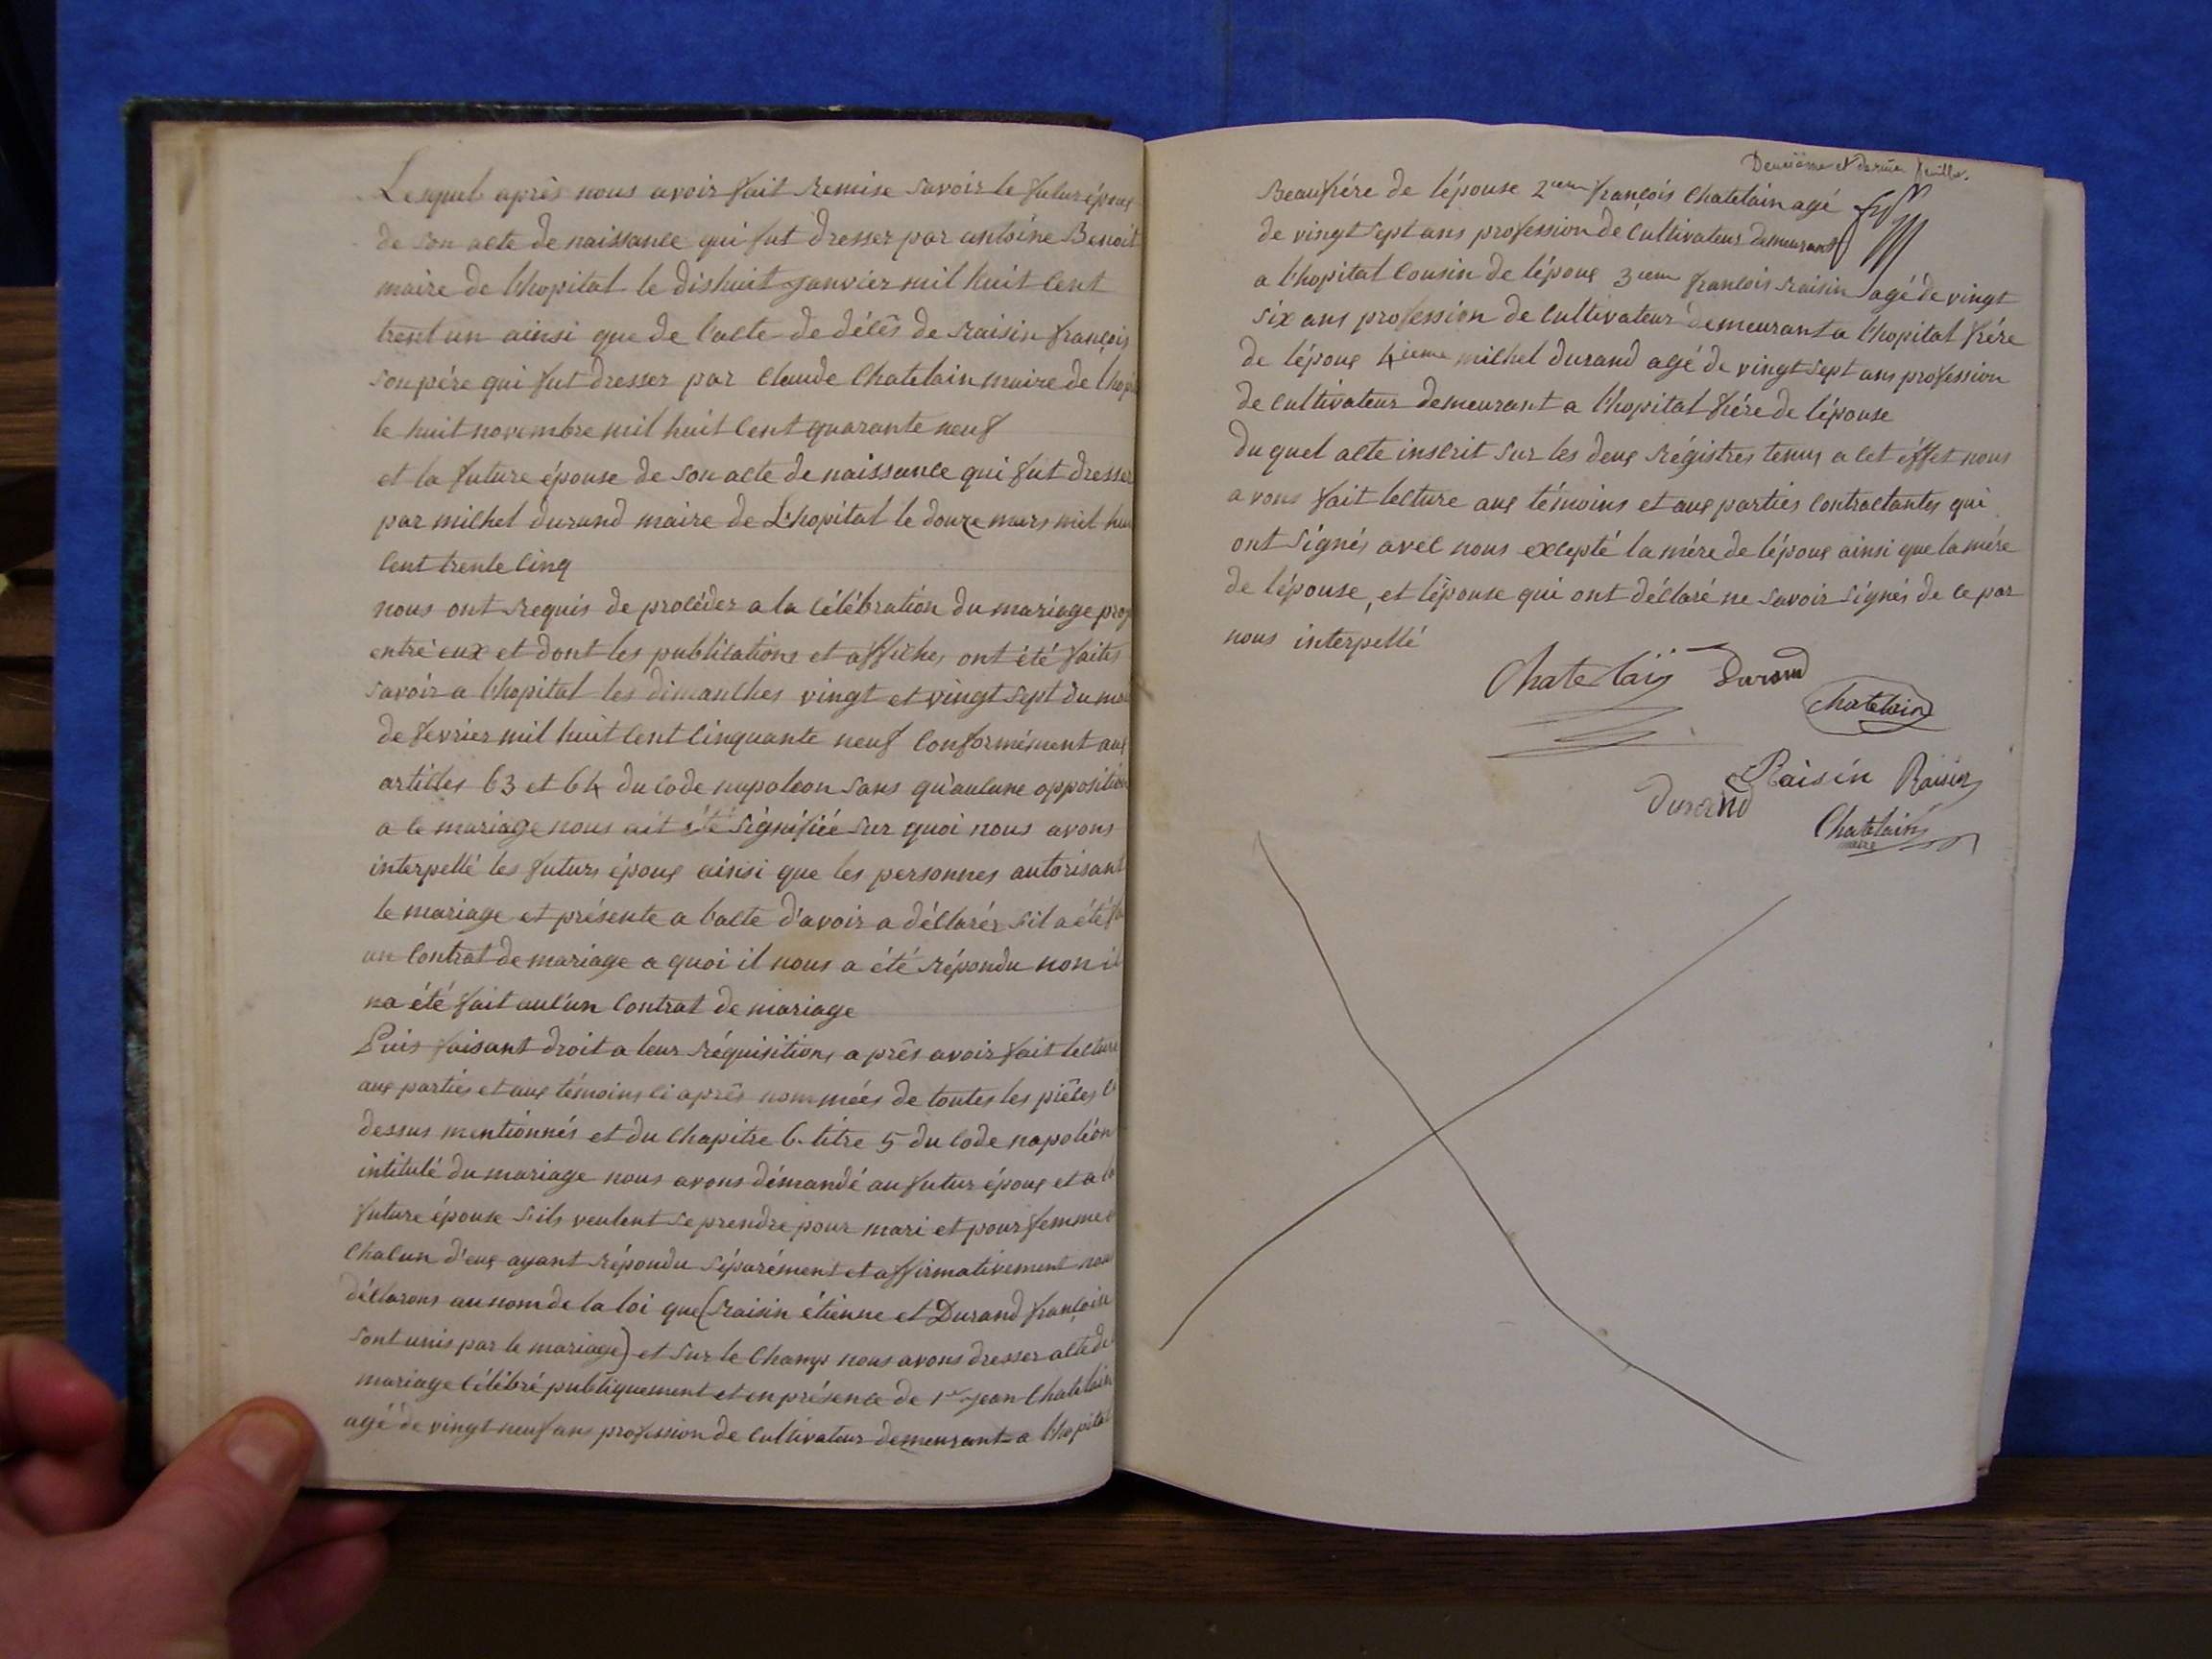 Lesquels après nous avoir fait remise savoir le futur époux
de son acte de naissance qui fut dresser par antoine Benoit
maire de l'hopital le dishuit janvier mil huit cent
trent un ainsi que de l'acte de décès de raisin françois
son père qui fut dresser par Claude Chatelain maire de l'hopi
le huit novembre mil huit cent quarante neuf
et la future épouse de son acte de naissance qui fut dresser
par michel durand maire de L'hopital le douze mars mil hui
cent trente cinq
nous ont requis de procéder a la célébration du mariage proj
entre eux et dont les publications et affiches ont été faites
savoir a l'hopital les dimanches vingt et vingt sept du moi
de fevrier mil huit cent cinquante neuf conformément aux
articles 63 et 64 du code napoleon sans qu'aucune opposition
a ce mariage nous ait été signifiée sur quoi nous avons
interpellé les futurs époux ainsi que les personnes autorisant
le mariage et présente a l'acte d'avoir a déclarér s'il a été fa
un contrat de mariage a quoi il nous a été répondu non il
na été fait auc'un contrat de mariage
Puis faisant droit a leur réquisitions après avoir fait lecture
aux parties et aux témoins ci après nommées de toutes les pièces ci
dessus mentionnés et du chapitre 6 titre 5 du code napoléon
intitulé du mariage nous avons démandé au futur époux et a la
future épouse s'ils veulent se prendre pour mari et pour femme
chacun d'eux ayant répondu séparément et affirmativement nous
déclarons au nom de la loi que (raisin étienne et Durand françoise
sont unis par le mariage) et sur le champ nous avons dresser acte de
mariage célébré publiquement et en présence de 1er jean Chatelain
agé de vingt neuf ans profession de cultivateur demeurant a l'hopital
Deuxième et dernier feuillet.
Beaufrére de lépouse 2ieme françois Chatelain agé
de vingt sept ans profession de cultivateur demeurant
a l'hopital cousin de lépoux 3ieme françois raisin agé de vingt
six ans profession de cultivateur demeurant a l'hopital frére
de lépoux 4ieme michel durand agé de vingt sept ans profession
de cultivateur demeurant a l'hopital frére de lépouse
du quel acte inscrit sur les deux régistres tenus a cet éffet nous
avons fait lecture aux témoins et aux parties contractantes qui
ont signés avec nous excepté la mére de lépoux ainsi que la mére
de lépouse, et lépouse qui ont déclaré ne savoir signés de ce par
nous interpellé
Chatelain Durand
Chatelain
Raisin Raisin
Durand
Chatelain
maire